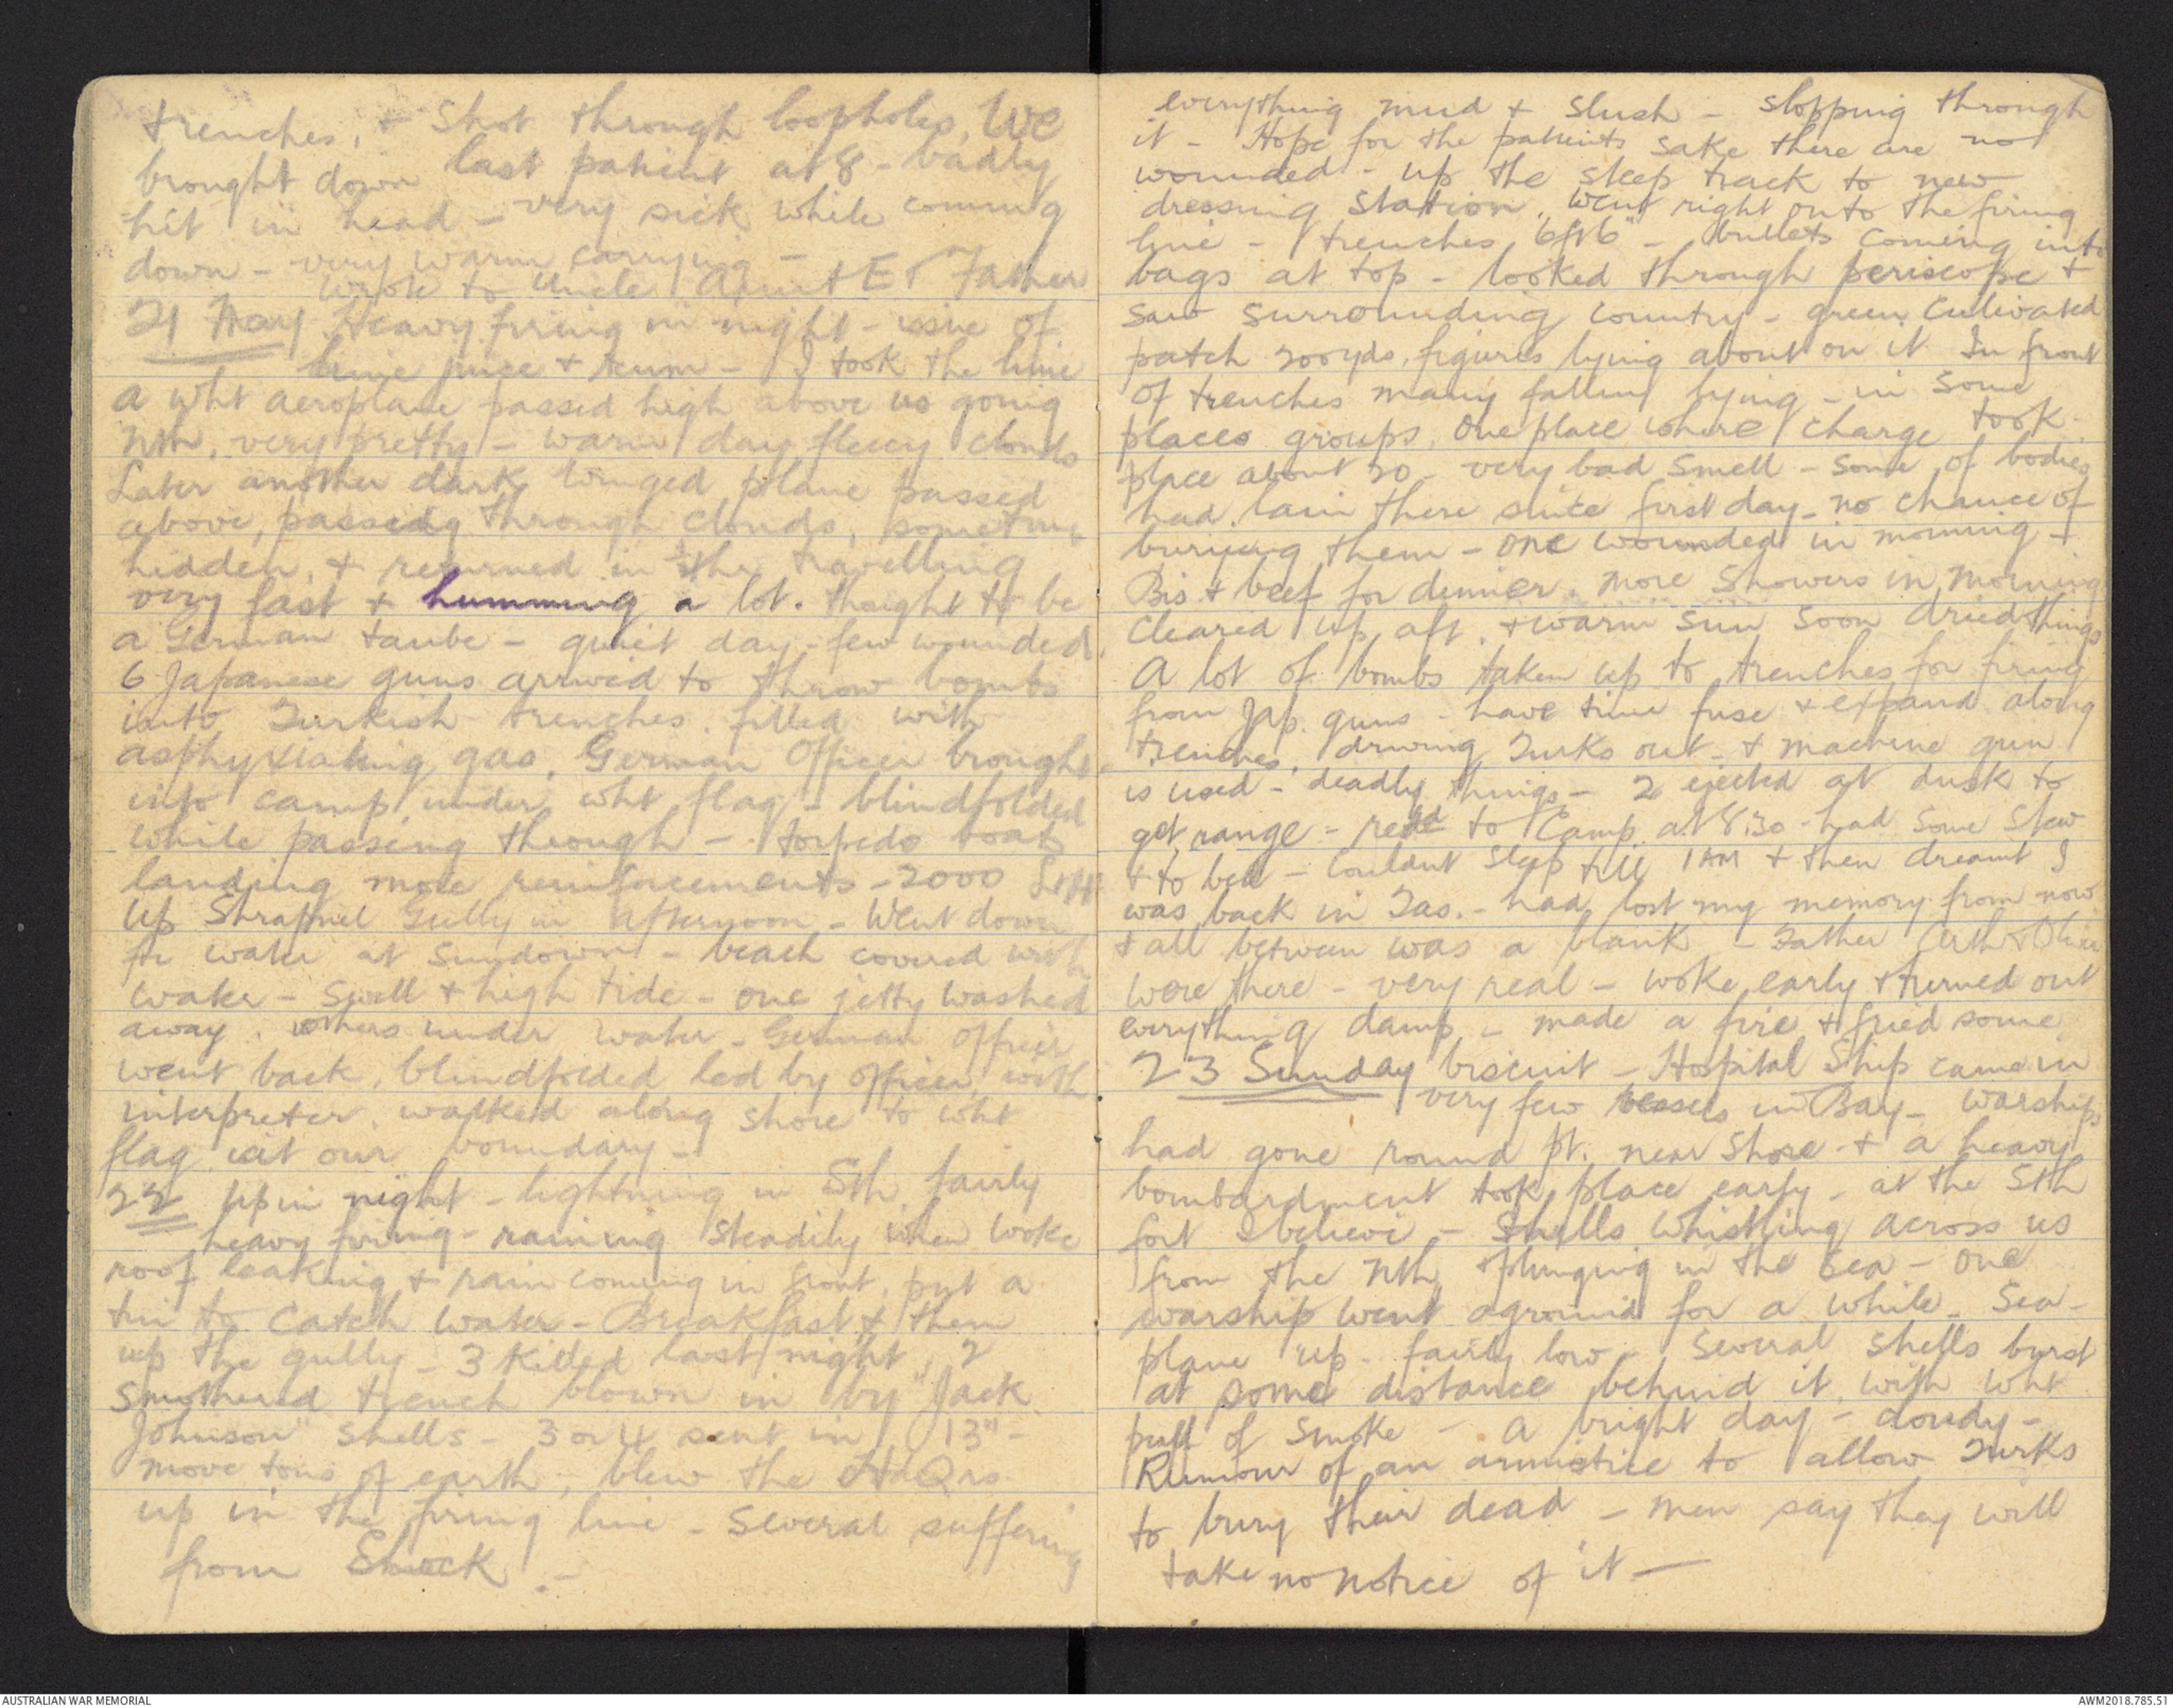 trenches, + shot through loopholes, We
brought down last patient at 8 - badly
hit in head - very sick while coming
down - very warm carrying -
wrote to Uncle Aunt E + Father
21 May Heavy firing in night - issue of
lime juice + rum - I took the lime
A wht aeroplane passed high above us going
Nth, very pretty - warm day fleecy clouds
Later another dark winged plane passed
above, passing through clouds, sometime
hidden, + returned in ½ hr travelling
very fast + humming a lot. thought to be
a German taube - quiet day - few wounded,
6 Japanese guns arrived to throw bombs
into Turkish trenches. filled with
asphyxiating gas. German Officer brought
into camp under wht flag - blindfolded
while passing through - torpedo boats
landing more reinforcements - 2000 LtH
up Shrapnel Gully in afternoon - Went down
for water at sundown - beach covered with
water - swell + high tide - one jetty washed
away. others under water - German officer
went back, blindfolded led by officer, with
interpreter. walked along shore to wht
flag at our boundary -
22 Up in night - lightning in Sth fairly
heavy firing - raining steadily when woke
roof leaking + rain coming in front, put a
tin to catch water - Breakfast + then
up the gully - 3 killed last night, 2
smothered trench blown in by "Jack
Johnson" shells - 3 or 4 sent in 13" -
move tons of earth, blew the HdQrs
up in the firing line - several suffering
from Shock. -
everything mud + slush - slopping through
it - Hope for the patients sake there are not
wounded - up the steep track to new
dressing station, Went right onto the firing
line - trenches 6ft 6" - bullets coming into
bags at top - looked through periscope +
saw surrounding country - green cultivated
patch 200yds, figures lying about on it In front
of trenches many fallen lying - in some
places groups, one place where charge took
place about 20 - very bad smell - some of bodies
had lain there since first day - no chance of
burying them - one wounded in morning +
Bis + beef for dinner. More showers in morning
Cleared up aft. + warm sun soon dried things
A lot of bombs taken up to trenches for firing
from Jap. guns - have time fuse + expand along
trenches, driving Turks out - + machine gun
is used - deadly things - 2 ejected at dusk to
get range - retd to Camp at 8.30 - had some stew
+ to bed - couldnt sleep till 1 AM + then dreamt I
was back in Tas. - had lost my memory from now
+ all between was a blank - Father Arth + Olive
were there - very real - woke early + turned out
everything damp - made a fire + fried some
23 Sunday biscuit - Hospital Ship came in
very few vessels in Bay - warships
had gone round pt. near shore + a heavy
bombardment took place early - at the Sth
fort I believe - Shells whistling across us
from the Nth + plunging in the Sea - one
warship went aground for a while - Sea-
plane up - fairly low - several shells burst
at some distance behind it with wht
puff of smoke - a bright day - cloudy -
Rumour of an armistice to allow Turks
to bury their dead - men say they will
take no notice of it -
AUSTRALIAN WAR MEMORIAL
AWM2018.785.51